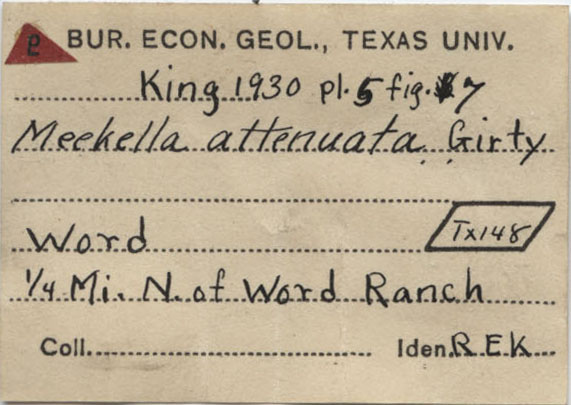 BUR. ECON. GEOL., TEXAS UNIV.
King 1930 pl. 5 fig. 7
Meekella attenuata Girty
Word
Tx148
1/4 Mi. N. of Word Ranch
Coll. Iden. REK